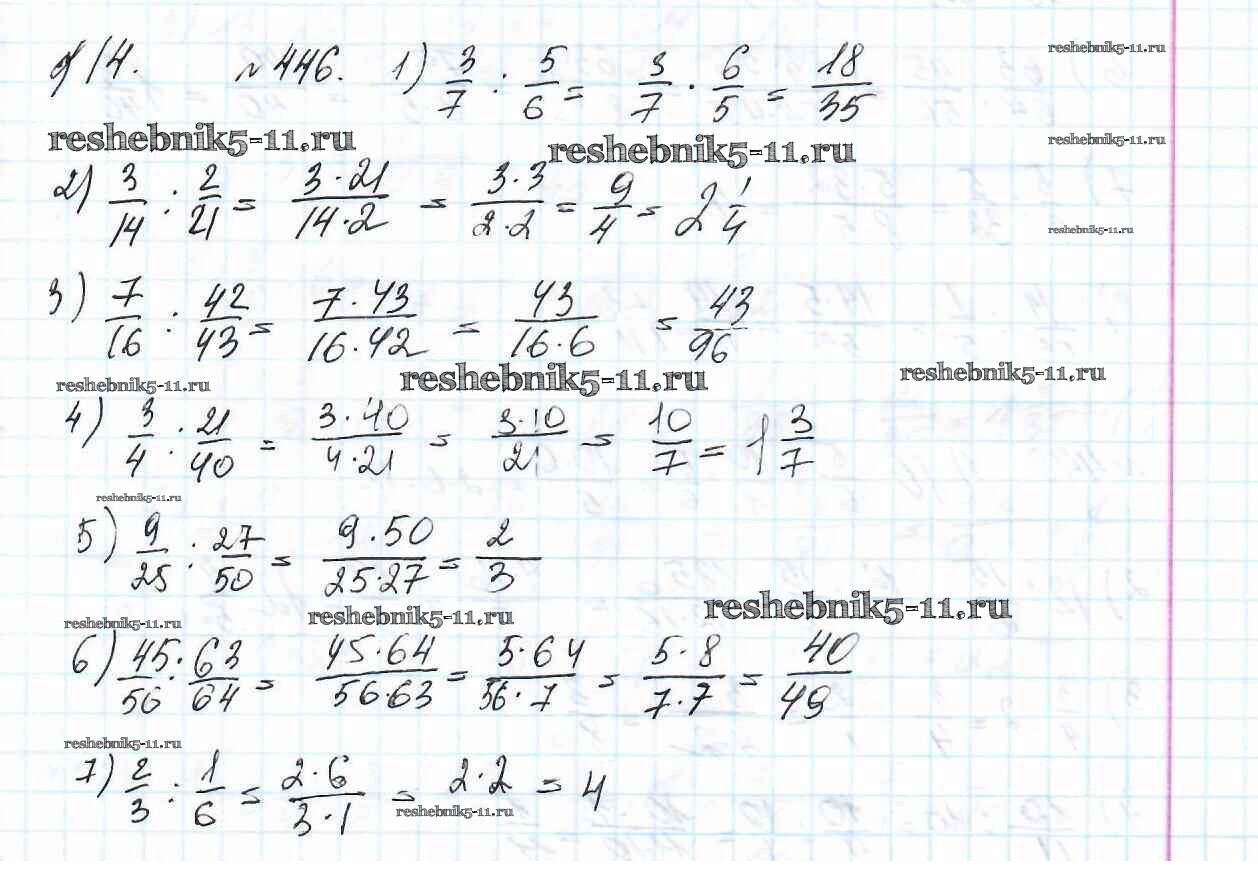 §14. №446. 1) 3/7 : 5/6 = 3/7 · 6/5 = 18/35
reshebnik5-11.ru
reshebnik5-11.ru
reshebnik5-11.ru
reshebnik5-11.ru
2) 3/14 : 2/21 = 3·21/14·2 = 3·3/2·2 = 9/4 = 2 1/4
reshebnik5-11.ru
3) 7/16 : 42/43 = 7·43/16·42 = 43/16·6 = 43/96
reshebnik5-11.ru
reshebnik5-11.ru
reshebnik5-11.ru
4) 3/4 : 21/40 = 3·40/4·21 = 3·10/21 = 10/7 = 1 3/7
reshebnik5-11.ru
5) 9/25 : 27/50 = 9·50/25·27 = 2/3
reshebnik5-11.ru
reshebnik5-11.ru
reshebnik5-11.ru
6) 45/56 : 63/64 = 45·64/56·63 = 5·64/56·7 = 5·8/7·7 = 40/49
reshebnik5-11.ru
7) 2/3 : 1/6 = 2·6/3·1 = 2·2 = 4
reshebnik5-11.ru